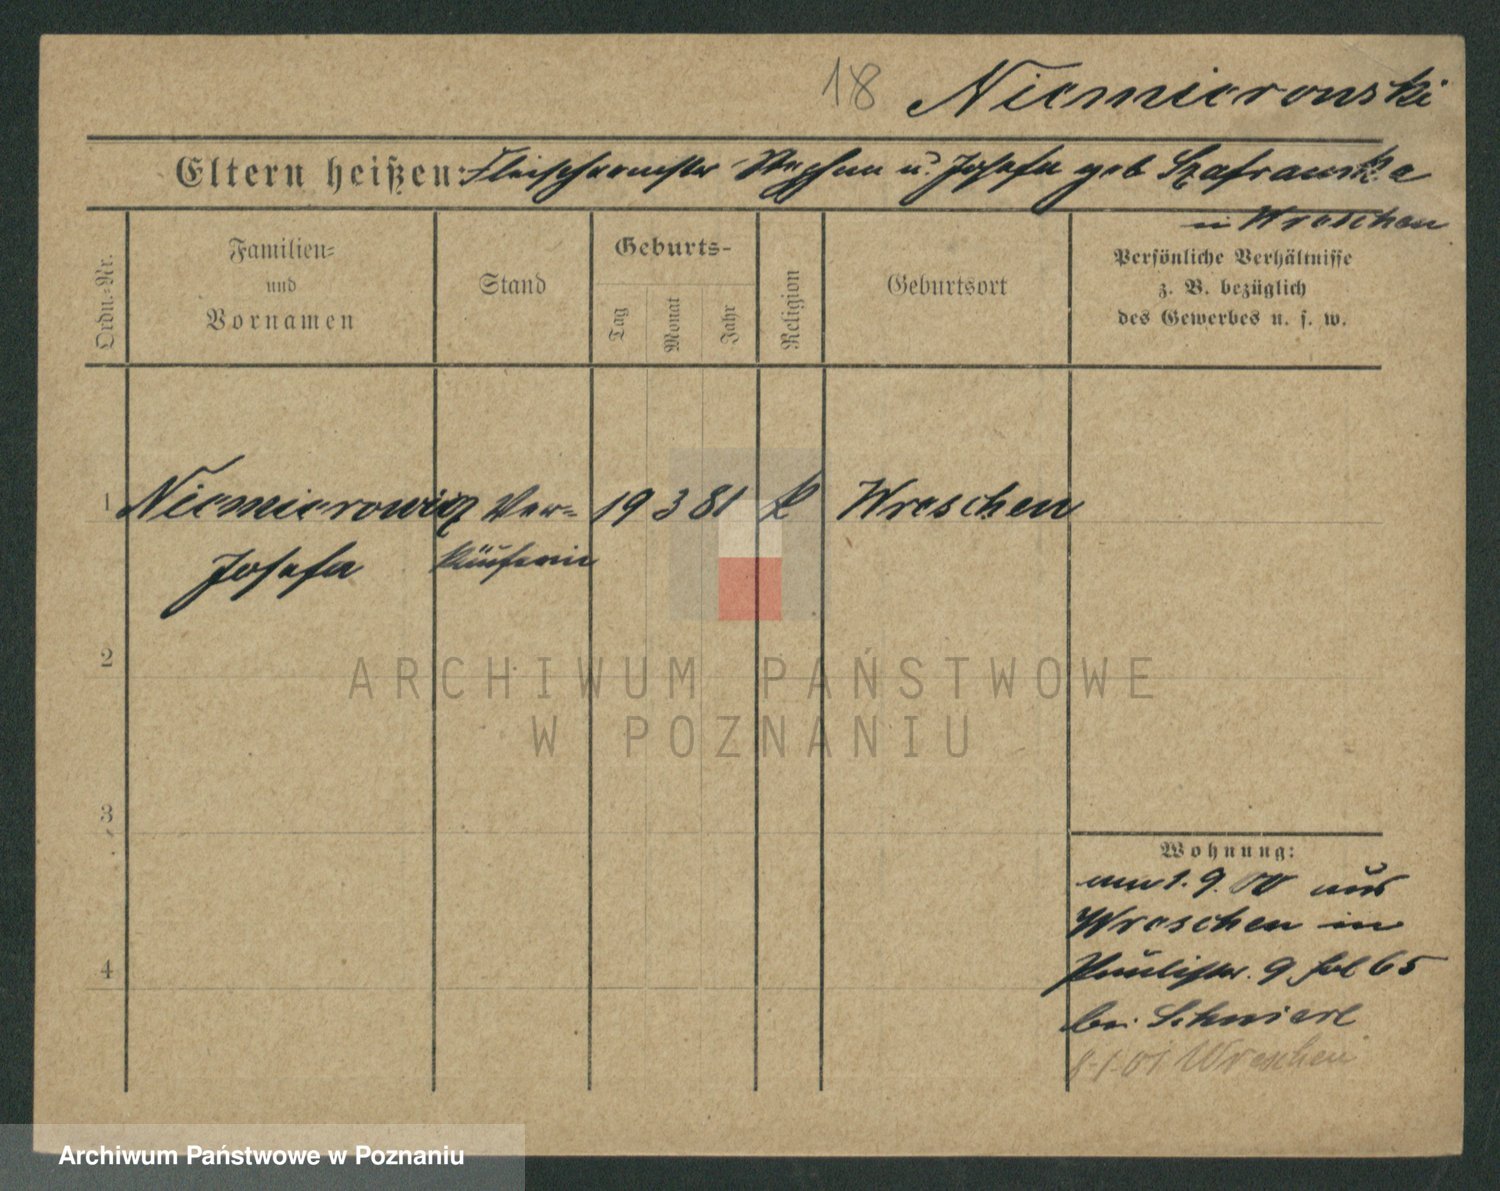 18 Niemierowski
Eltern heißen: Fleischermstr Stephan u. Josefa geb Szafranska
in Wreschen
Ordn.-Nr.
Familien-
und
Vornamen
Stand
Geburts-
Tag
Monat
Jahr
Religion
Geburtsort
Persönliche Verhältnisse
z. B. bezüglich
des Gewerbes u. s. w.
1 Niemierowicz Ver- 19 3 81 k Wreschen
Josefa käuferin
2
ARCHIWUM PAŃSTWOWE
W POZNANIU
3
Wohnung:
am 1. 9. 00 aus
Wreschen in
Paulistr. 9 fol 65
4
bei
8-1-01 Wreschen
Archiwum Państwowe w Poznaniu